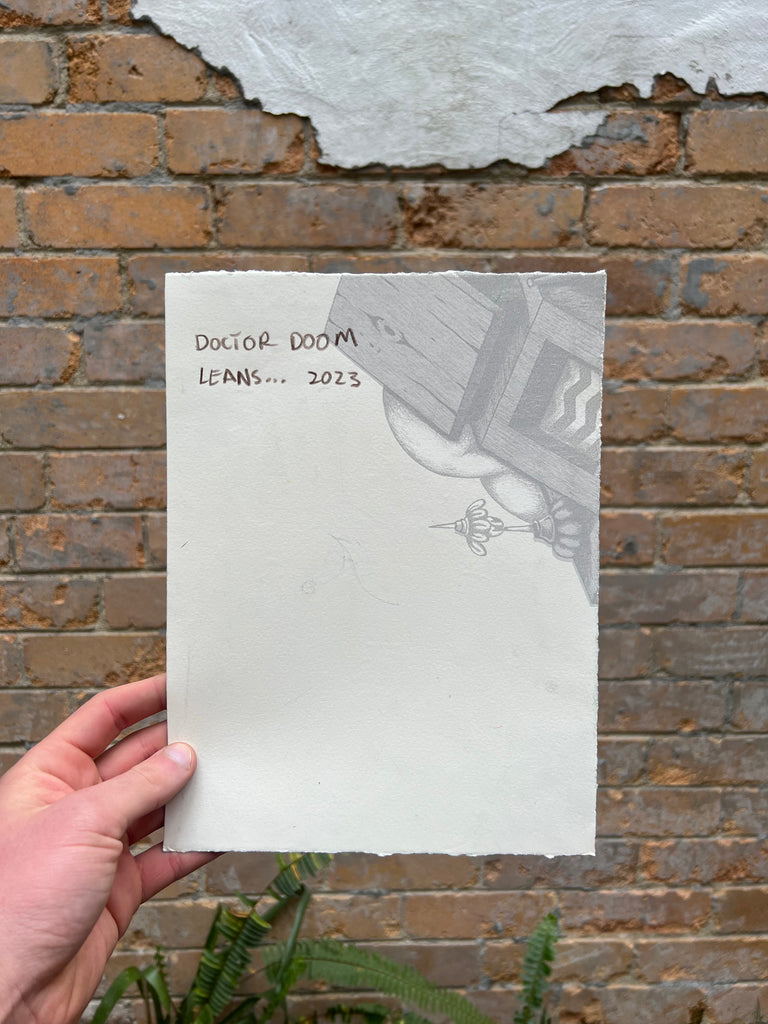 DOCTOR DOOM
LEANS... 2023